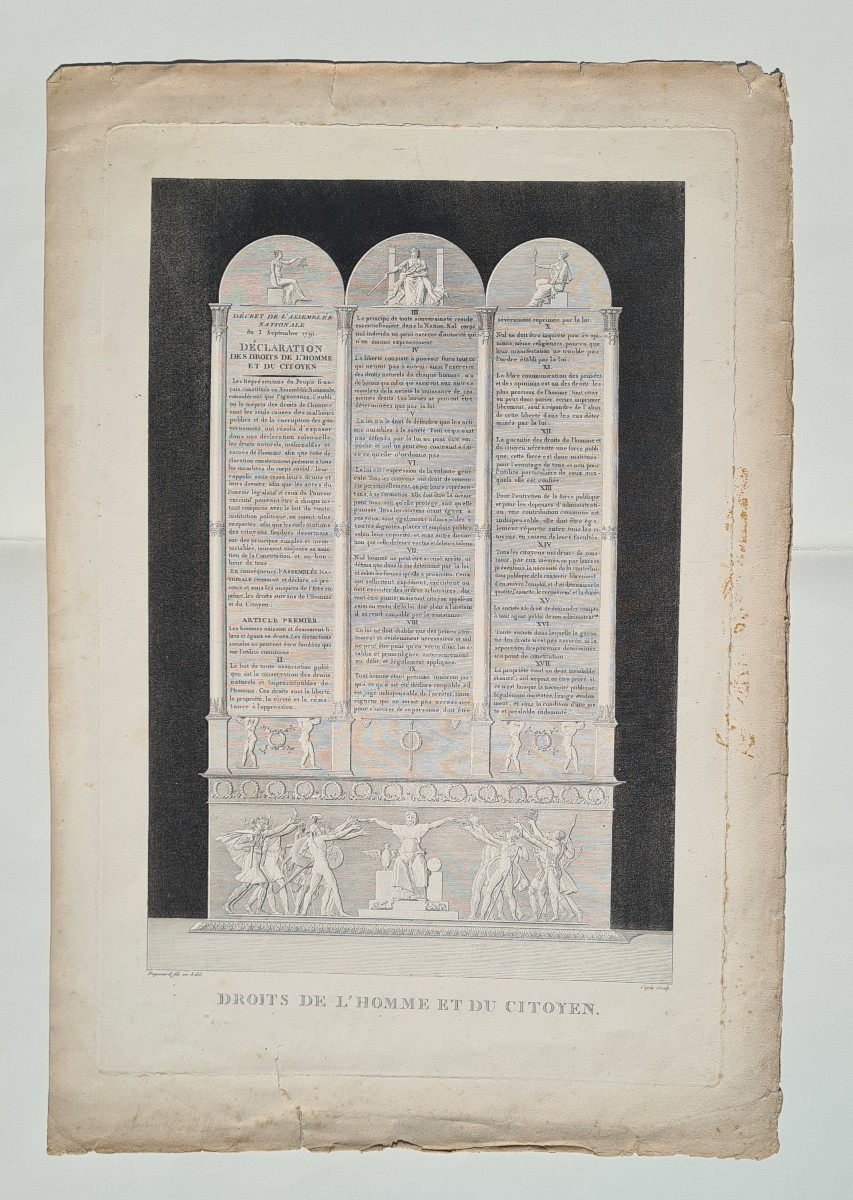 DÉCRET DE L'ASSEMBLÉE
NATIONALE
du 3 Septembre 1791.
DÉCLARATION
DES DROITS DE L'HOMME
ET DU CITOYEN
Les Représentans du Peuple fran-
çois, constitués en Assemblée Nationale,
considérant que l'ignorance, l'oubli,
ou le mépris des droits de l'homme
sont les seules causes des malheurs
publics et de la corruption des gou-
vernemens, ont résolu d'exposer
dans une déclaration solennelle,
les droits naturels, inaliénables et
sacrés de l'homme, afin que cette dé-
claration constamment présente à tous
les membres du corps social, leur
rappelle sans cesse leurs droits et
leurs devoirs; afin que les actes du
Pouvoir législatif et ceux du Pouvoir
exécutif, pouvant être à chaque ins-
tant comparés avec le but de toute
institution politique, en soient plus
respectés; afin que les réclamations
des citoyens, fondées désormais
sur des principes simples et incon-
testables, tournent toujours au main-
tien de la Constitution, et au bon-
heur de tous.
En conséquence, l'ASSEMBLÉE NA-
TIONALE reconnoît et déclare, en pré-
sence et sous les auspices de l'Être su-
prême, les droits suivans de l'Homme
et du Citoyen.
ARTICLE PREMIER.
Les hommes naissent et demeurent li-
bres et égaux en droits. Les distinctions
sociales ne peuvent être fondées que
sur l'utilité commune.
II.
Le but de toute association politi-
que est la conservation des droits
naturels et imprescriptibles de
l'homme. Ces droits sont la liberté,
la propriété, la sûreté et la résis-
tance à l'oppression.
III
Le principe de toute souveraineté réside
essentiellement dans la Nation. Nul corps
nul individu ne peut exercer d'autorité qui
n'en émane expressément.
IV
La liberté consiste à pouvoir faire tout ce
qui ne nuit pas à autrui: ainsi l'exercice
des droits naturels de chaque homme n'a
de bornes que celles qui assurent aux autres
membres de la société la jouissance de ces
mêmes droits. Ces bornes ne peuvent être
déterminées que par la loi.
V
La loi n'a le droit de défendre que les acti-
ons nuisibles à la société. Tout ce qui n'est
pas défendu par la loi ne peut être em-
pêché, et nul ne peut être contraint à fai-
re ce qu'elle n'ordonne pas.
VI.
La loi est l'expression de la volonté géné-
rale. Tous les citoyens ont droit de concou-
rir personnellement, ou par leurs représen-
tans, à sa formation. Elle doit être la même
pour tous, soit qu'elle protège, soit qu'elle pu-
nisse. Tous les citoyens étant égaux à
ses yeux, sont également admissibles à
toutes dignités, places et emplois publics,
selon leur capacité, et sans autre distinc-
tion que celle de leurs vertus et de leurs talens.
VII
Nul homme ne peut être accusé, arrêté, ni
détenu que dans les cas déterminés par la loi,
et selon les formes qu'elle a prescrites. Ceux
qui sollicitent, expédient, exécutent ou
font exécuter des ordres arbitraires, doi-
vent être punis; mais tout citoyen appelé ou
saisi en vertu de la loi, doit obéir à l'instant
il se rend coupable par la résistance.
VIII
La loi ne doit établir que des peines stric-
tement et évidemment nécessaires, et nul
ne peut être puni qu'en vertu d'une loi é-
tablie et promulguée antérieurement
au délit, et légalement appliquée.
IX
Tout homme étant présumé innocent jus-
qu'à ce qu'il ait été déclaré coupable, s'il
est jugé indispensable de l'arrêter, toute
rigueur qui ne serait pas nécessaire
pour s'assurer de sa personne, doit être
sévèrement réprimée par la loi.
X
Nul ne doit être inquiété pour ses opi-
nions, même religieuses, pourvu que
leur manifestation ne trouble pas
l'ordre établi par la loi.
XI.
La libre communication des pensées
et des opinions est un des droits les
plus précieux de l'homme; tout citoy-
en peut donc parler, écrire, imprimer
librement, sauf à répondre de l'abus
de cette liberté dans les cas déter-
minés par la loi.
XII
La garantie des droits de l'homme et
du citoyen nécessite une force publi-
que; cette force est donc instituée
pour l'avantage de tous et non pour
l'utilité particulière de ceux aux-
quels elle est confiée.
XIII
Pour l'entretien de la force publique
et pour les dépenses d'administrati-
on, une contribution commune est
indispensable; elle doit être éga-
lement répartie entre tous les ci-
toyens, en raison de leurs facultés.
XIV
Tous les citoyens ont le droit de cons-
tater, par eux-mêmes, ou par leurs re-
présentans, la nécessité de la contribu-
tion publique, de la consentir librement,
d'en suivre l'emploi, et d'en déterminer la
quotité, l'assiette, le recouvrement et la durée.
XV
La société a le droit de demander compte
à tout agent public de son administration.
XVI.
Toute société dans laquelle la garan-
tie des droits n'est pas assurée, ni la
séparation des pouvoirs déterminée,
n'a point de constitution.
XVII.
La propriété étant un droit inviolable
et sacré, nul ne peut en être privé, si
ce n'est lorsque la nécessité publique,
légalement constatée, l'exige évidem-
ment, et sous la condition d'une jus-
te et préalable indemnité.
DROITS DE L'HOMME ET DU CITOYEN.